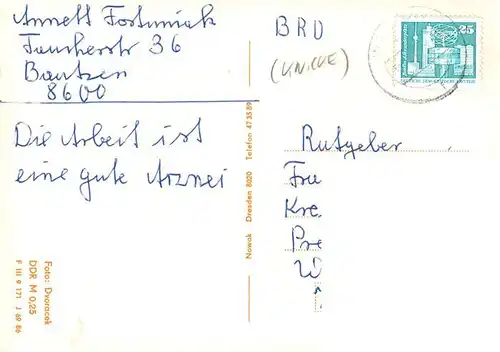 Annett Fortuniak
Taucherstr 36
Bautzen
8600
Die Arbeit ist
eine gute Arznei
BRD
(KNICKE)
25
Rutgeber
Fra
Kre
Pre
Nowak Dresden 8020 Telefon 473589
Foto: Dvoracek
DDR M 0,25
F III 9 171 J 69 86